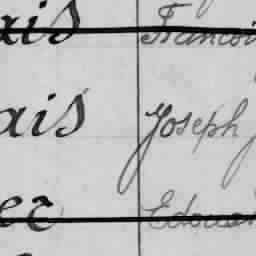 ais Francois
ais Joseph
ec Edouar